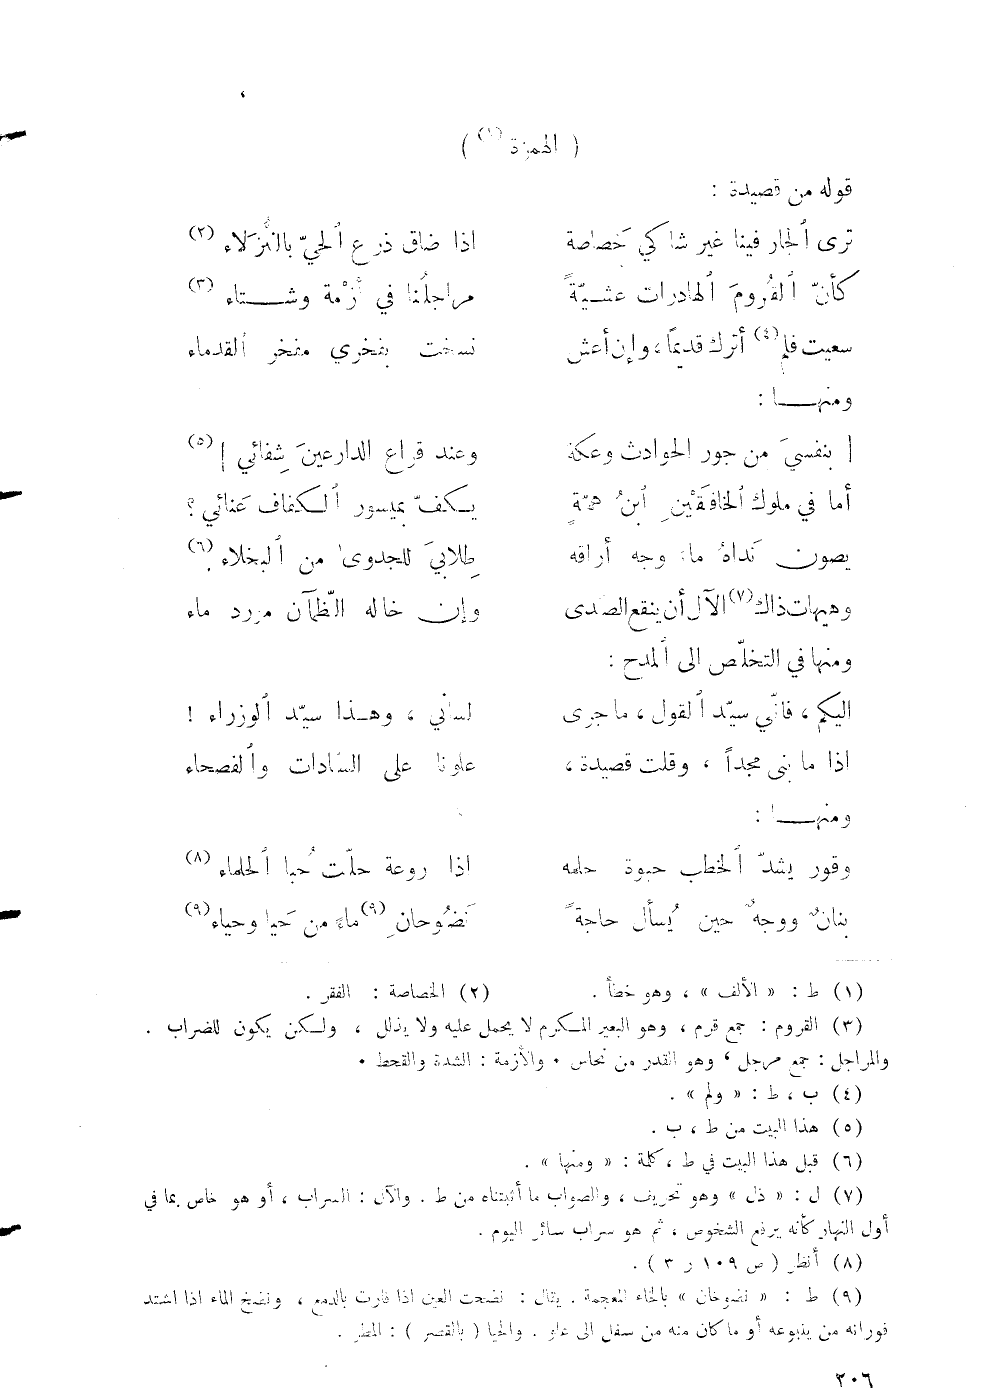 ( الهمزة (١) )
قوله من قصيدة :
ترى ٱلجار فينا غير شاكي خَصاصة اذا ضاق ذرع ٱلحيّ بالنُّزَلاء (٢)
كأنّ ٱلقُرومَ ٱلهادرات عشـيّةً مراجلُنا في أَزْمة وشـــتاء (٣)
سعيت فلم (٤) أترك قديماً ، وإن أعش نسخت بفخري مفخر ٱلقدماء
ومنهـــا :
| بنفسيَ من جور الحوادث وعكة وعند قراع الدارعينَ شِفائي | (٥)
أما في ملوك ٱلخافِقَيْنِ ٱبنُ همّةٍ يـكفّ بميسور ٱلـكفاف عَنائي ؟
يصون نَداهُ ماءَ وجه أراقه طِلابيَ للجدوىٰ من ٱلبخلاء . (٦)
وهيهات ذاك (٧) الآل أن ينقع الصّدى وإن خاله الظّمآن مورد ماء
ومنها في التخلّص الى ٱلمدح :
اليكم ، فانّي سيّد ٱلقول ، ما جرى لساني ، وهـذا سيّد ٱلوزراء !
اذا ما بنى مجداً ، وقلت قصيدة ، علونا على السّادات وٱلفصحاء
ومنهـــا :
وقور يشدّ ٱلخطب حبوة حلمه اذا روعة حلّت حُبا ٱلحلماء (٨)
بنانٌ ووجهٌ حين يُسأل حاجةً نَضُوحانِ (٩) ماءً من حَيا وحياء (٩)
(١) ط : « الألف » ، وهو خطأ . (٢) الخصاصة : الفقر .
(٣) القروم : جمع قرم ، وهو البعير المـكرم لا يحمل عليه ولا يذلل ، ولـكن يكون للضراب .
والمراجل : جمع مرجل ، وهو القدر من نحاس . والأزمة : الشدة والقحط .
(٤) ب ، ط : « ولم » .
(٥) هذا البيت من ط ، ب .
(٦) قبل هذا البيت في ط ، كلمة : « ومنها » .
(٧) ل : « ذل » وهو تحريف ، والصواب ما أثبتناه من ط . والآل : السراب ، أو هو خاص بما في
أول النهار كأنه يرفع الشخوص ، ثم هو سراب سائر اليوم .
(٨) أنظر ( ص ١٠٩ ر ٣ ) .
(٩) ط : « نضوخان » بالخاء المعجمة . يقال : نضحت العين اذا فارت بالدمع ، ونضخ الماء اذا اشتد
فورانه من ينبوعه أو ما كان منه من سفل الى علو . والحيا ( بالقصر ) : المطر .
٢٠٦